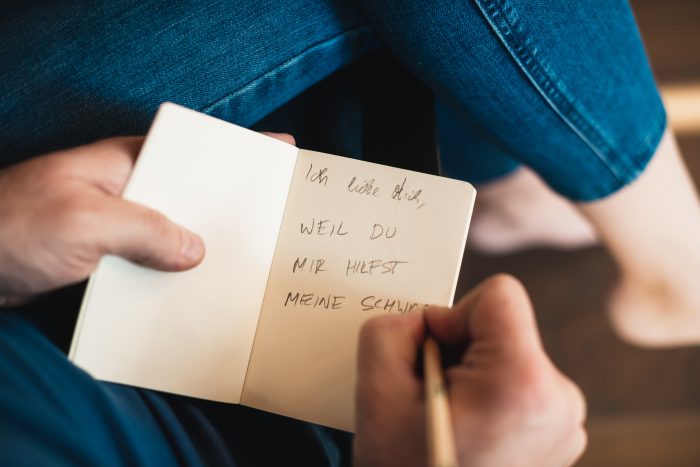 Ich liebe dich,
WEIL DU
MIR HILFST
MEINE